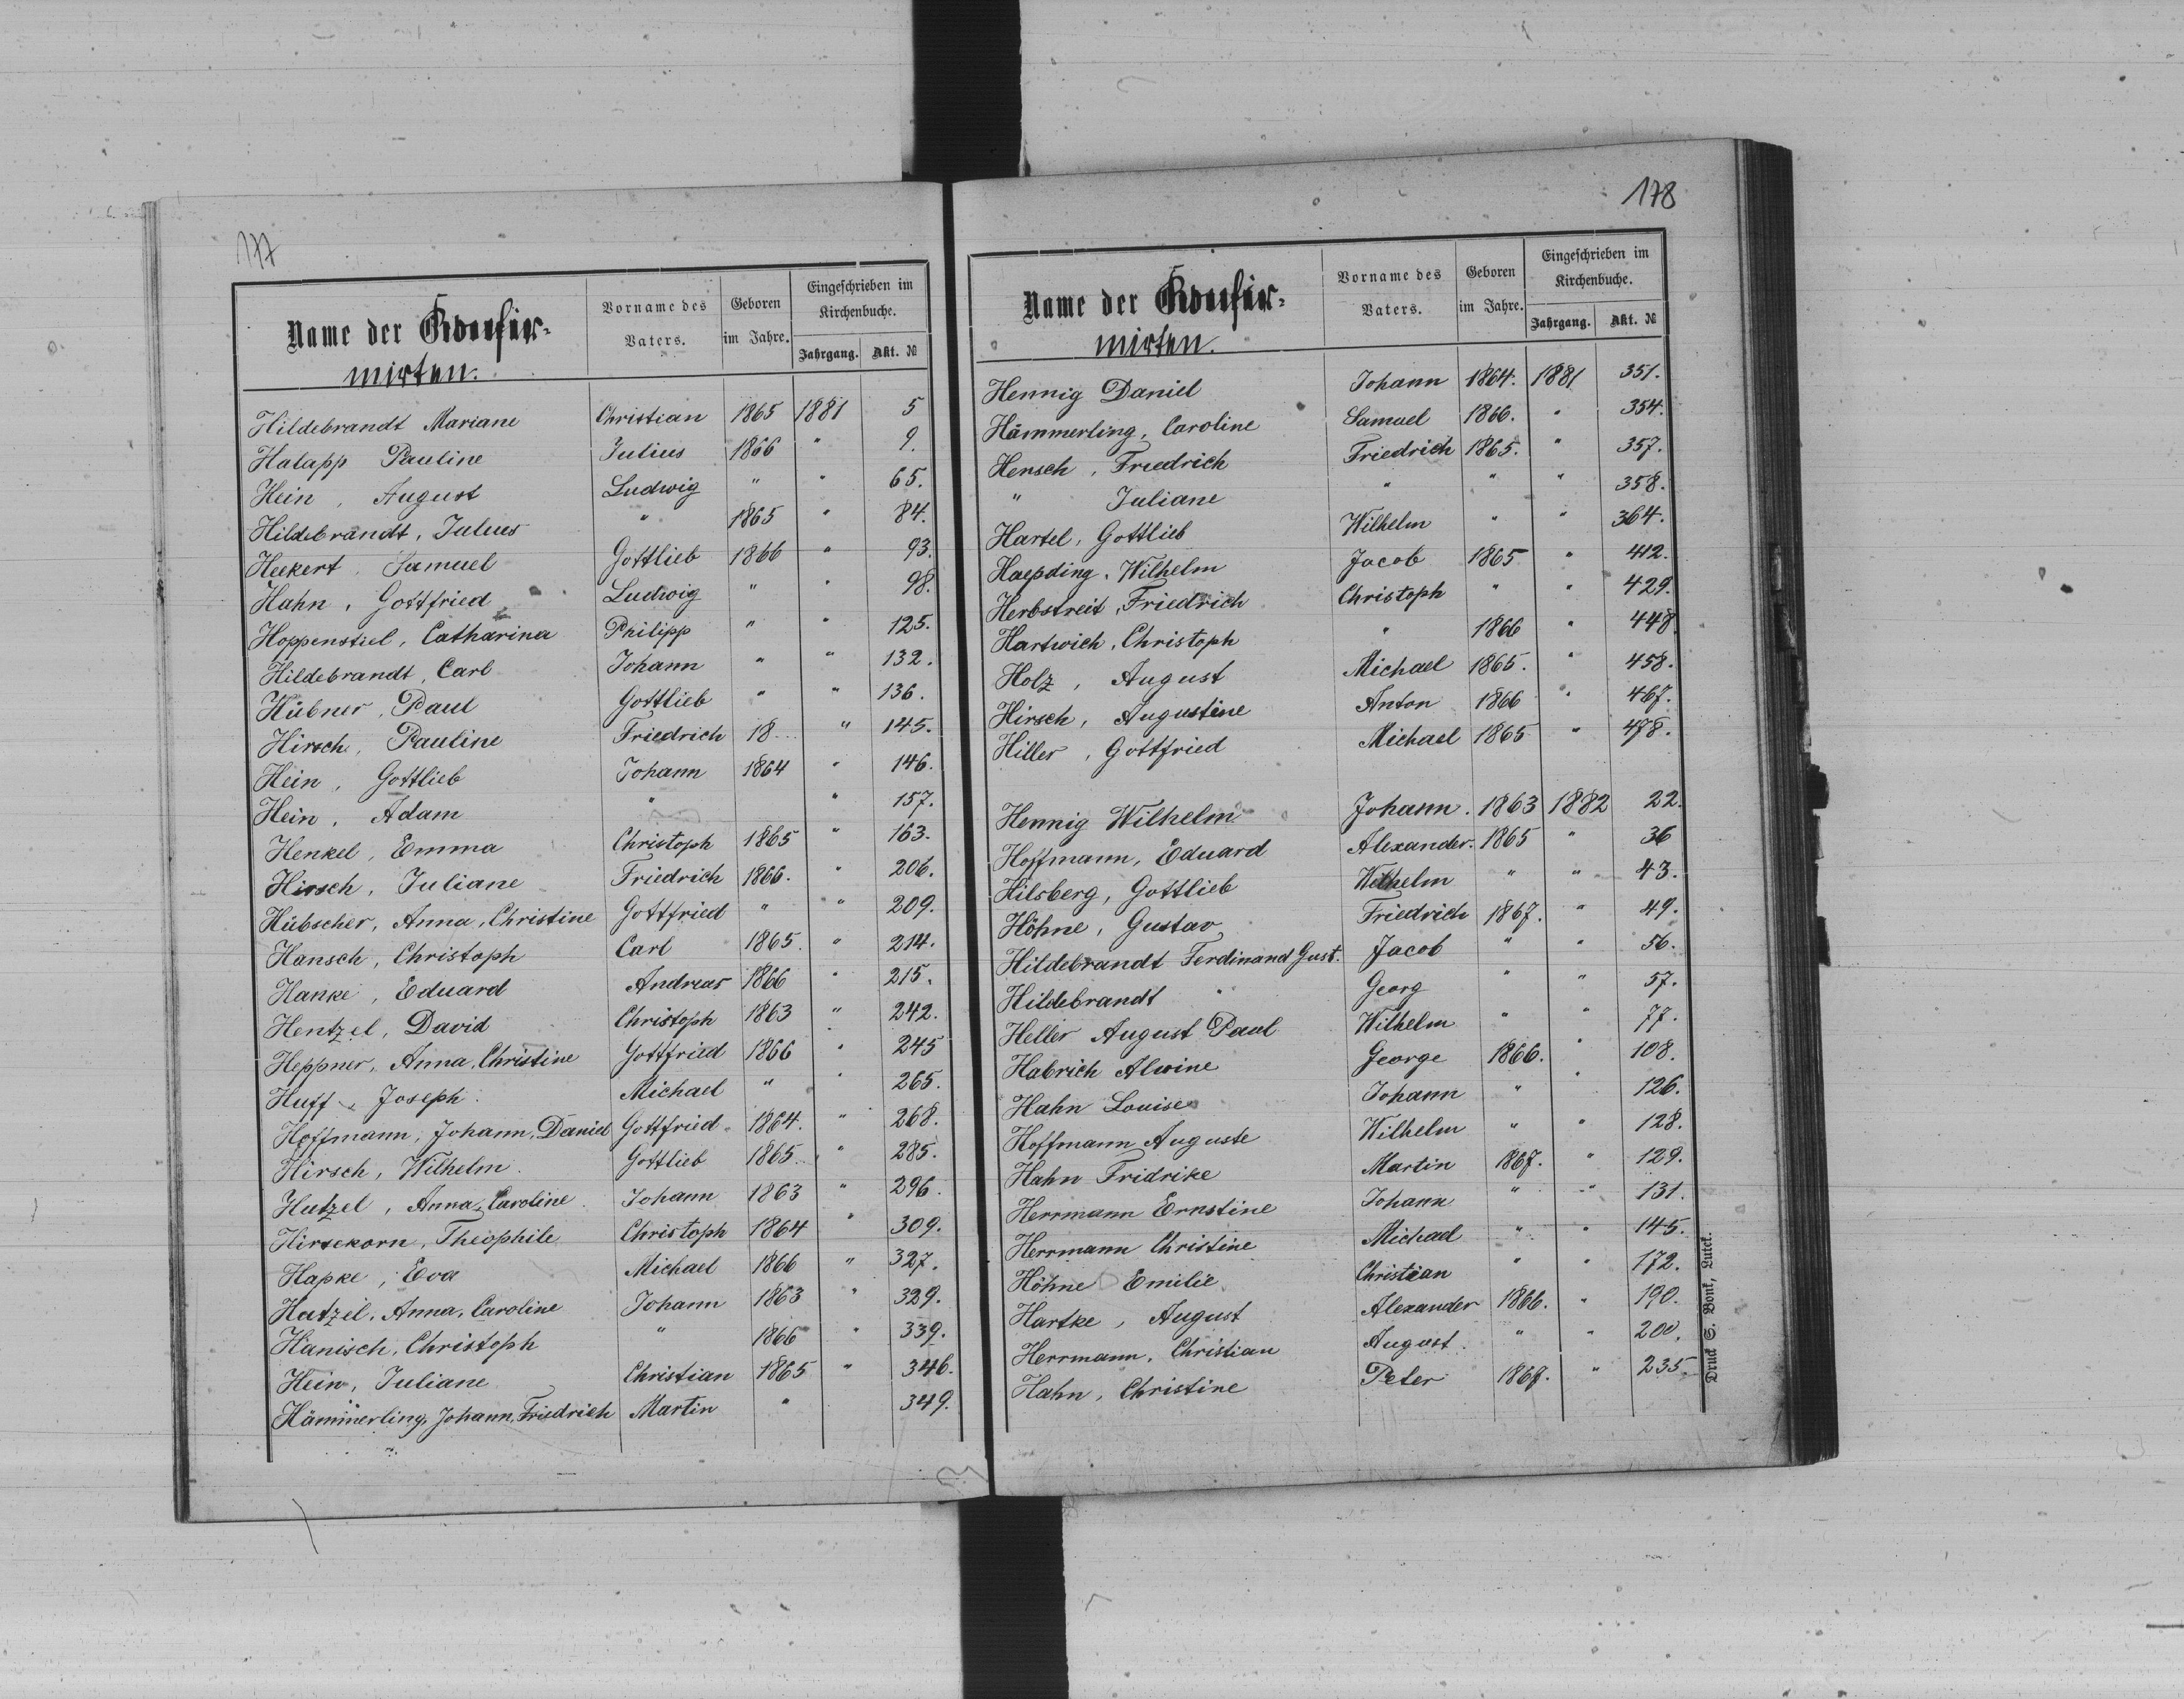 177
Name der Confir-
mirten.
Vorname des Vaters.
Geboren im Jahre.
Eingeschrieben im Kirchenbuche.
Jahrgang. Akt. №
Hildebrandt Mariane Christian 1865 1881 5
Halapp Pauline Julius 1866 " 9.
Hein, August Ludwig " " 65.
Hildebrandt, Julius " 1865 " 84.
Heekert, Samuel Gottlieb 1866 " 93.
Hahn, Gottfried Ludwig " " 98.
Hoppenstiel, Catharina Philipp " " 125.
Hildebrandt, Carl Johann " " 132.
Hübner, Paul Gottlieb " " 136.
Hirsch, Pauline Friedrich 18 " 145.
Hein, Gottlieb Johann 1864 " 146.
Hein, Adam " " 157.
Henkel, Emma Christoph 1865 " 163.
Hirsch, Juliane Friedrich 1866. " 206.
Hübscher, Anna, Christine Gottfried " " 209.
Hansch, Christoph Carl 1865. " 214.
Hanke, Eduard Andreas 1866 " 215.
Hentzel, David Christoph 1863 " 242.
Heppner, Anna, Christine Gottfried 1866 " 245
Huff, Joseph. Michael " " 265.
Hoffmann, Johann, Daniel Gottfried 1864. " 268.
Hirsch, Wilhelm. Gottlieb 1865. " 285.
Hutzel, Anna, Caroline Johann 1863 " 296.
Hirsekorn, Theophile Christoph 1864 " 309.
Hapke, Eva Michael 1866 " 327.
Hutzel, Anna, Caroline Johann 1863 " 329.
Hänisch, Christoph " 1866 " 339.
Hein, Juliane Christian 1865 " 346.
Hämmerling, Johann, Friedrich Martin " 349.
178
Name der Confir-
mirten.
Vorname des Vaters.
Geboren im Jahre.
Eingeschrieben im Kirchenbuche.
Jahrgang. Akt. №
Hennig Daniel Johann 1864. 1881 351.
Hämmerling, Caroline Samuel 1866. " 354.
Hensch, Friedrich Friedrich 1865. " 357.
" Juliane " " " 358.
Hartel, Gottlieb Wilhelm " " 364.
Haepding, Wilhelm Jacob 1865 " 412.
Herbstreit, Friedrich Christoph " " 429.
Hartwich, Christoph " 1866 " 448
Holz, August Michael 1865. " 458.
Hirsch, Augustine Anton 1866 " 467.
Hiller, Gottfried Michael 1865 " 478.
Hennig Wilhelm Johann. 1863 1882 22.
Hoffmann, Eduard Alexander. 1865 " 36
Hilsberg, Gottlieb Wilhelm " " 43.
Höhne, Gustav Friedrich 1867. " 49.
Hildebrandt Ferdinand Gust. Jacob " " 56.
Hildebrandt " Georg " " 57.
Heller August Paul Wilhelm " " 77.
Habrich Alwine George 1866. " 108.
Hahn Louise Johann " " 126.
Hoffmann Auguste Wilhelm " " 128.
Hahn Fridrike Martin 1867. " 129.
Herrmann Ernstine Johann " " 131.
Herrmann Christine Michael " " 145.
Höhne Emilie Christian " " 172.
Hartke, August Alexander 1866. " 190.
Herrmann, Christian August. " " 200.
Hahn, Christine Peter 1867. " 235.
Druck S. Bonk, Lutck.